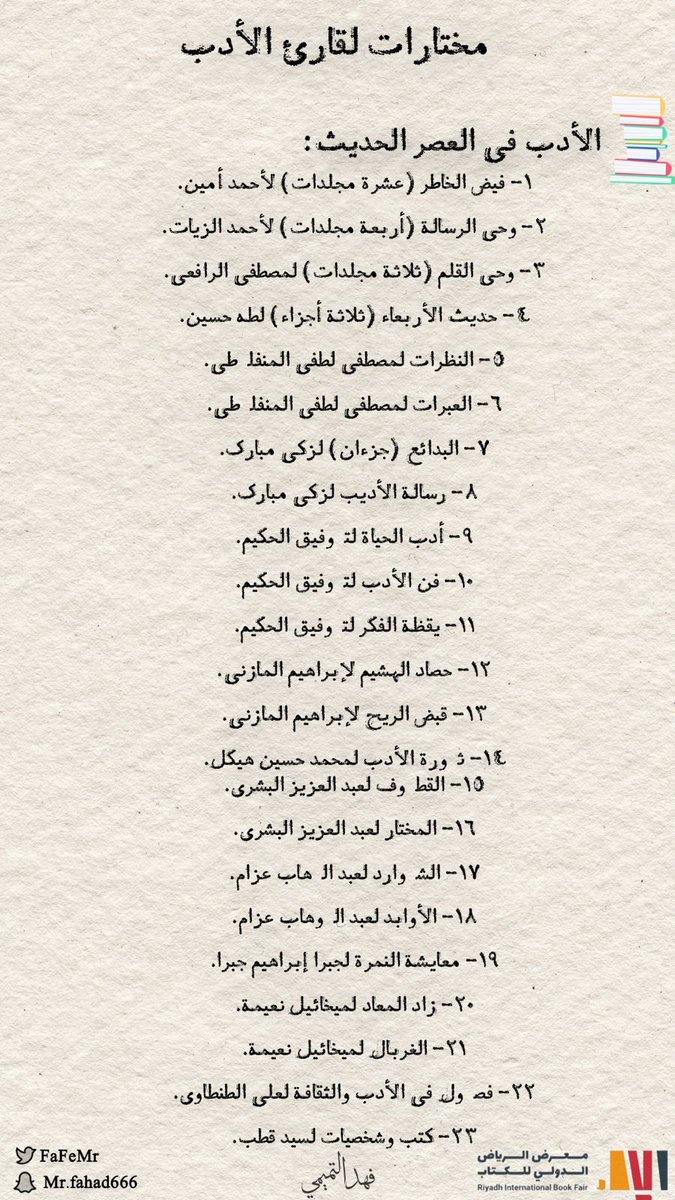 مختارات لقارئ الأدب
الأدب في العصر الحديث:
١- فيض الخاطر (عشرة مجلدات) لأحمد أمين.
٢- وحي الرسالة (أربعة مجلدات) لأحمد الزيات.
٣- وحي القلم (ثلاثة مجلدات) لمصطفى الرافعي.
٤- حديث الأربعاء (ثلاثة أجزاء) لطه حسين.
٥- النظرات لمصطفى لطفي المنفلوطي.
٦- العبرات لمصطفى لطفي المنفلوطي.
٧- البدائع (جزءان) لزكي مبارك.
٨- رسالة الأديب لزكي مبارك.
٩- أدب الحياة لتوفيق الحكيم.
١٠- فن الأدب لتوفيق الحكيم.
١١- يقظة الفكر لتوفيق الحكيم.
١٢- حصاد الهشيم لإبراهيم المازني.
١٣- قبض الريح لإبراهيم المازني.
١٤- ثورة الأدب لمحمد حسين هيكل.
١٥- القطوف لعبد العزيز البشري.
١٦- المختار لعبد العزيز البشري.
١٧- الشوارد لعبد الوهاب عزام.
١٨- الأوابد لعبد الوهاب عزام.
١٩- معايشة النمرة لجبرا إبراهيم جبرا.
٢٠- زاد المعاد لميخائيل نعيمة.
٢١- الغربال لميخائيل نعيمة.
٢٢- فصول في الأدب والثقافة لعلي الطنطاوي.
٢٣- كتب وشخصيات لسيد قطب.
معرض الرياض
الدولي للكتاب
Riyadh International Book Fair
فهد التميمي
FaFeMr
Mr.fahad666